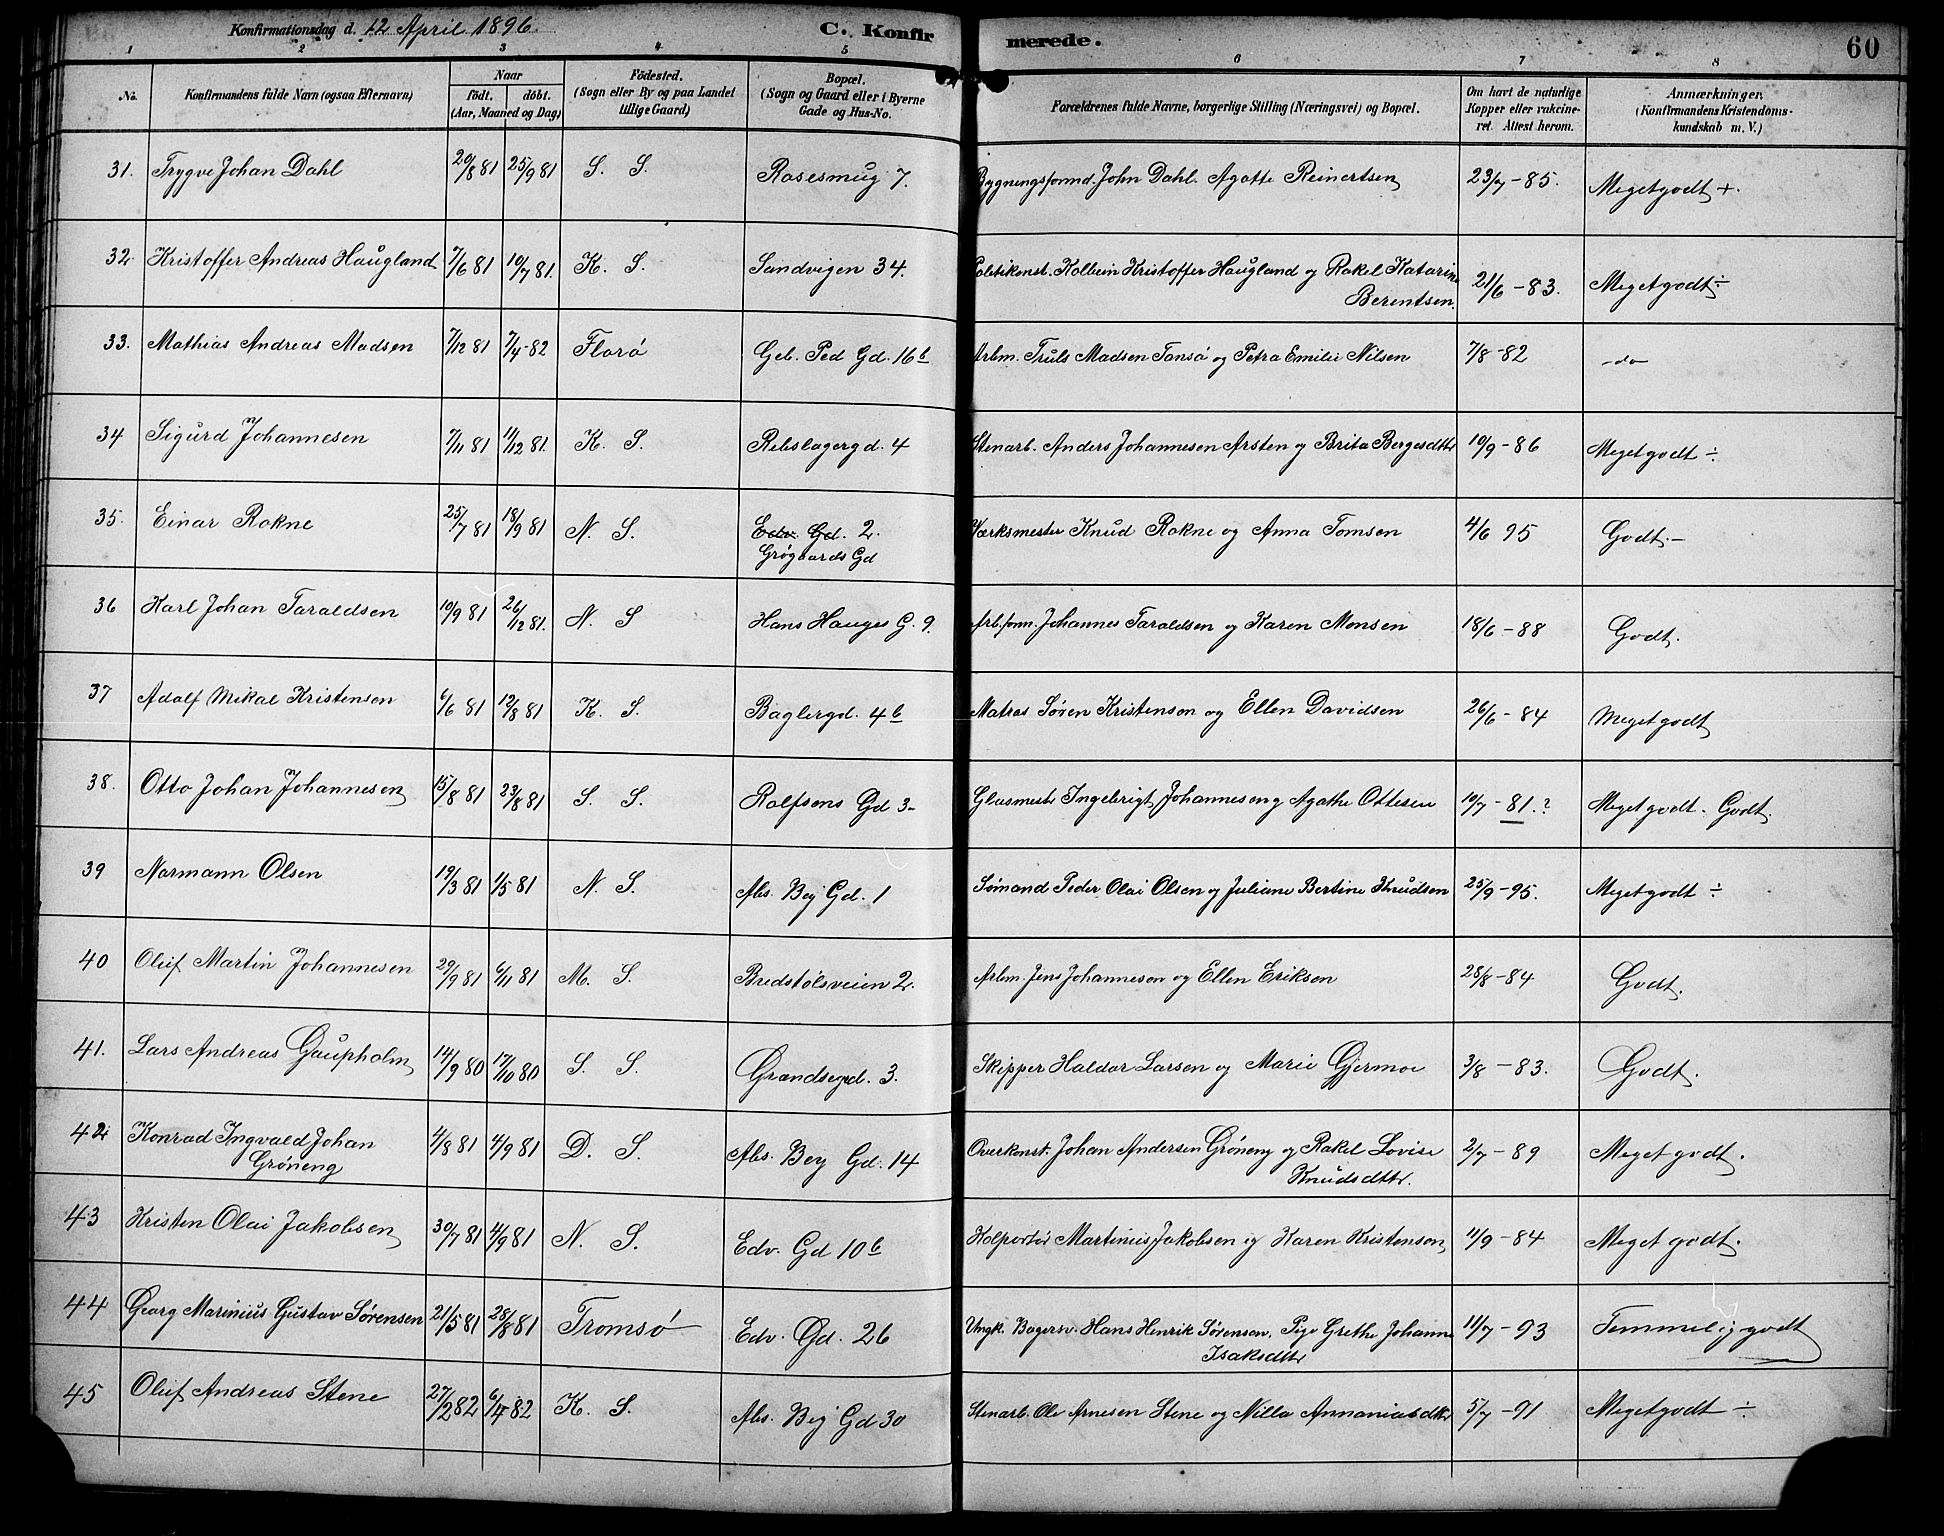 Konfirmationsdag d. 12 April 1896. C. Konfirmerede. 60
1 2 3 4 5 6 7 8
No. Konfirmandens fulde Navn (ogsaa Efternavn) Naar födt. döbt. (Aar, Maaned og Dag) Födested. (Sogn eller By og paa Landet tillige Gaard) Bopæl. (Sogn og Gaard eller i Byerne Gade og Hus-No. Forældrenes fulde Navne, borgerlige Stilling (Næringsvei) og Bopæl. Om havt de naturlige Kopper eller vakcineret. Attest herom. Anmærkninger, (Konfirmandens Kristendomskundskab m. V.)
31. Trygve Johan Dahl 20/8 81 25/9 81 S. S. Rosesmug 7. Bygningsformd. John Dahl. Agatte Reinertsen 23/7 - 85. Megetgodt +.
32. Kristoffer Andreas Haugland 7/6 81 10/7 81. K. S. Sandvigen 34. Politikonst. Kolbein Kristoffer Haugland og Rakel Katarina
Berentsen. 21/6 - 83. Megetgodt ÷
33. Mathias Andreas Madsen 7/12 81 7/4 - 82 Florø Geb. Ped Gd. 16b Arbm. Truls Madsen Tansø og Petra Emilie Nilsen 7/8 - 82 - do -
34 Sigurd Johannesen 7/11 81 11/12 81. K. S. Rebslagergd. 4 Stenarb. Anders Johannesen Arsten og Brita Bergesdttr 10/9 - 86 Megetgodt ÷.
35. Einar Rokne 25/7 81 18/9 81 N. S. Edv. Gd. 2.
Grøgaards Gd Værksmester Knud Rokne og Anna Tomsen 4/6 95 Godt. -
36 Karl Johan Taraldsen 10/9 81 26/12 81. N. S Hans Hauges G. 9. Arb.form. Johannes Taraldsen og Karen Monsen 18/6 - 88 Godt.
37 Adolf Mikal Kristensen 6/6 81 12/8 81 K. S. Baglergd. 4b Matros Søren Kristenson og Ellen Davidsen 26/6 - 84 Megetgodt
38. Otto Johan Johannesen 15/8 81 23/8 81 S. S. Rolfsens Gd 3- Glasmester Ingebrigt Johannesen og Agathe Ottesen 10/7 - 81.? Megetgodt. Godt.
39 Normann Olsen 19/3 81 1/5 81 N. S. Abs. Bej Gd. 1 Sømand Peder Olai Olsen og Juliane Bertine Knudsen 25/9 - 95. Megetgodt ÷
40 Oluf Martin Johannesen 29/9 81 6/11 81 M. S. Bredstølsveien 2. Arbm. Jens Johanneson og Ellen Eriksen 28/8 - 84 Godt.
41. Lars Andreas Gaupholm 14/9 80 17/10 80 S. S. Grandsegd. 3. Skipper Haldor Larsen og Marie Gjermoe 3/8 - 83. Godt.
42 Konrad Ingvald Johan
Grøneng 4/8 81 4/9 81 D. S. Abs. Bey Gd. 14 Overkonst. Johan Andersen Grøneng og Rakel Lovise
Knudsdttr. 2/7 - 89 Megetgodt.
43 Kristen Olai Jakobsen 30/7 81 4/9 81 N. S. Edv. Gd 10b Kolportør Martinius Jakobsen og Karen Kristenson 11/9 - 84 Megetgodt.
44 Georg Marinius Gustav Sørensen 21/5 81 28/8 81 Tromsø Edv. Gd. 26 Ungk. Bagersv. Hans Henrik Sørenson. Pige Grethe Johanne
Isaksdttr 11/7 - 93 Temmelig godt
45 Oluf Andreas Stene 27/2 82 6/4 82 K. S. Abs. Bej Gd 30 Stenarb. Ole Arnesen Stene og Nilla Annaniasdttr 5/7 - 91 Megetgodt ÷